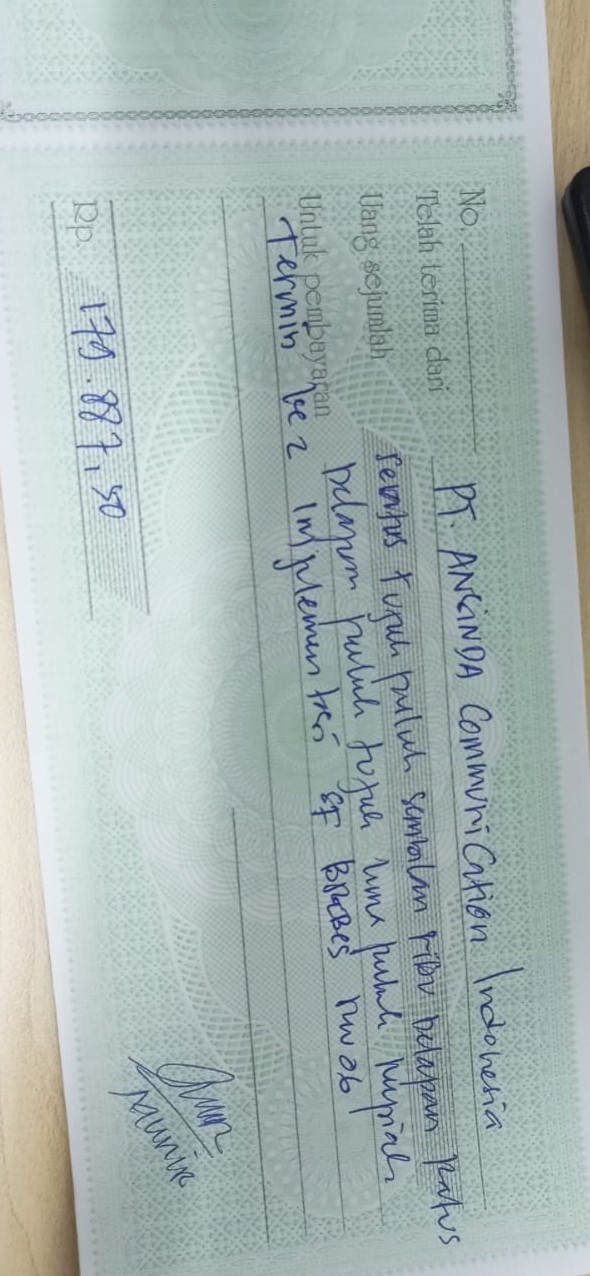 No.
Telah terima dari PT. ANGINDA Communication Indonesia
Uang sejumlah seratus tujuh puluh sembilan ribu delapan Ratus
delapan puluh tujuh lima puluh rupiah
Untuk pembayaran
Termin ke 2 Implementasi SF BREBES RW 06
Rp. 179.887,50
Munir